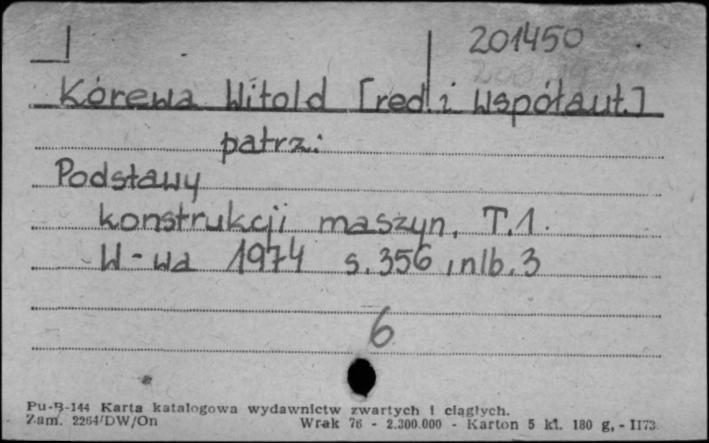 201450
Korewa Witold [red. i współaut.]
patrz:
Podstawy
konstrukcji maszyn. T.1.
W-wa 1974 s. 356, nlb. 3
6
Pu-B-144 Karta katalogowa wydawnictw zwartych i ciągłych.
Zam. 2264/DW/On Wrak 76 - 2.300.000 - Karton 5 kl. 180 g. - II73.